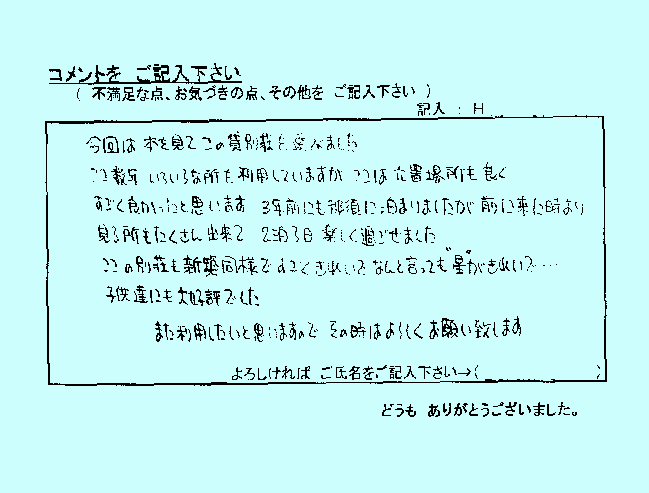 コメントを ご記入下さい
( 不満足な点、お気づきの点、その他を ご記入下さい )
記入 : H
今回は 本を見て この貸別荘を 選びました
ここ数年 いろいろな所を利用していますが ここは 位置場所も良く
すごく良かったと思います 3年前にも那須に泊まりましたが 前に来た時より
見る所もたくさん出来て 2泊3日 楽しく過ごせました
ここの別荘も新築同様で すごくきれいで なんと言っても"星"がきれいで…
子供達にも大好評でした
また利用したいと思いますので その時はよろしくお願い致します
よろしければ ご氏名をご記入下さい→( )
どうも ありがとうございました。